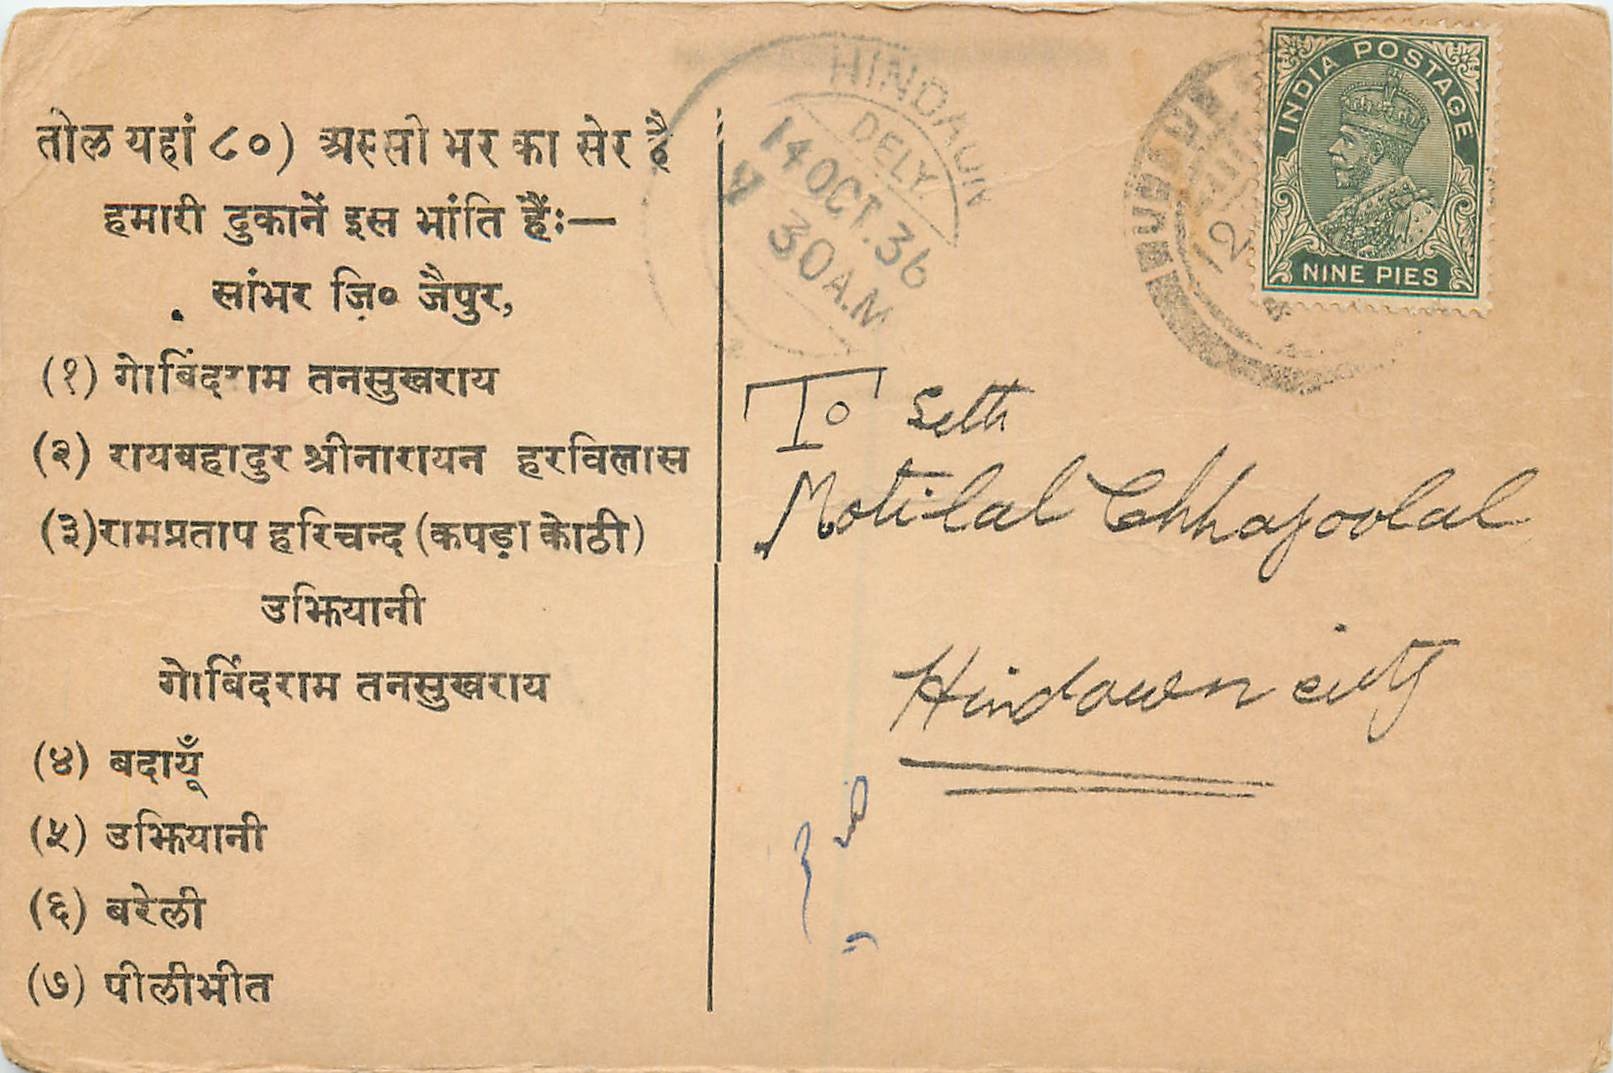 तोल यहां ८०) अस्सी भर का सेर है
हमारी दुकानें इस भांति हैं:—
सांभर ज़ि० जैपुर,
(१) गोबिंदराम तनसुखराय
(२) रायबहादुर श्रीनारायन हरविलास
(३) रामप्रताप हरिचन्द (कपड़ा कोठी)
उझियानी
गोबिंदराम तनसुखराय
(४) बदायूँ
(५) उझियानी
(६) बरेली
(७) पीलीभीत
HINDAUN
DELY.
14 OCT. 36
30 A.M
INDIA POSTAGE
NINE PIES
To Seth
Motilal Chhajoolal
Hindown city